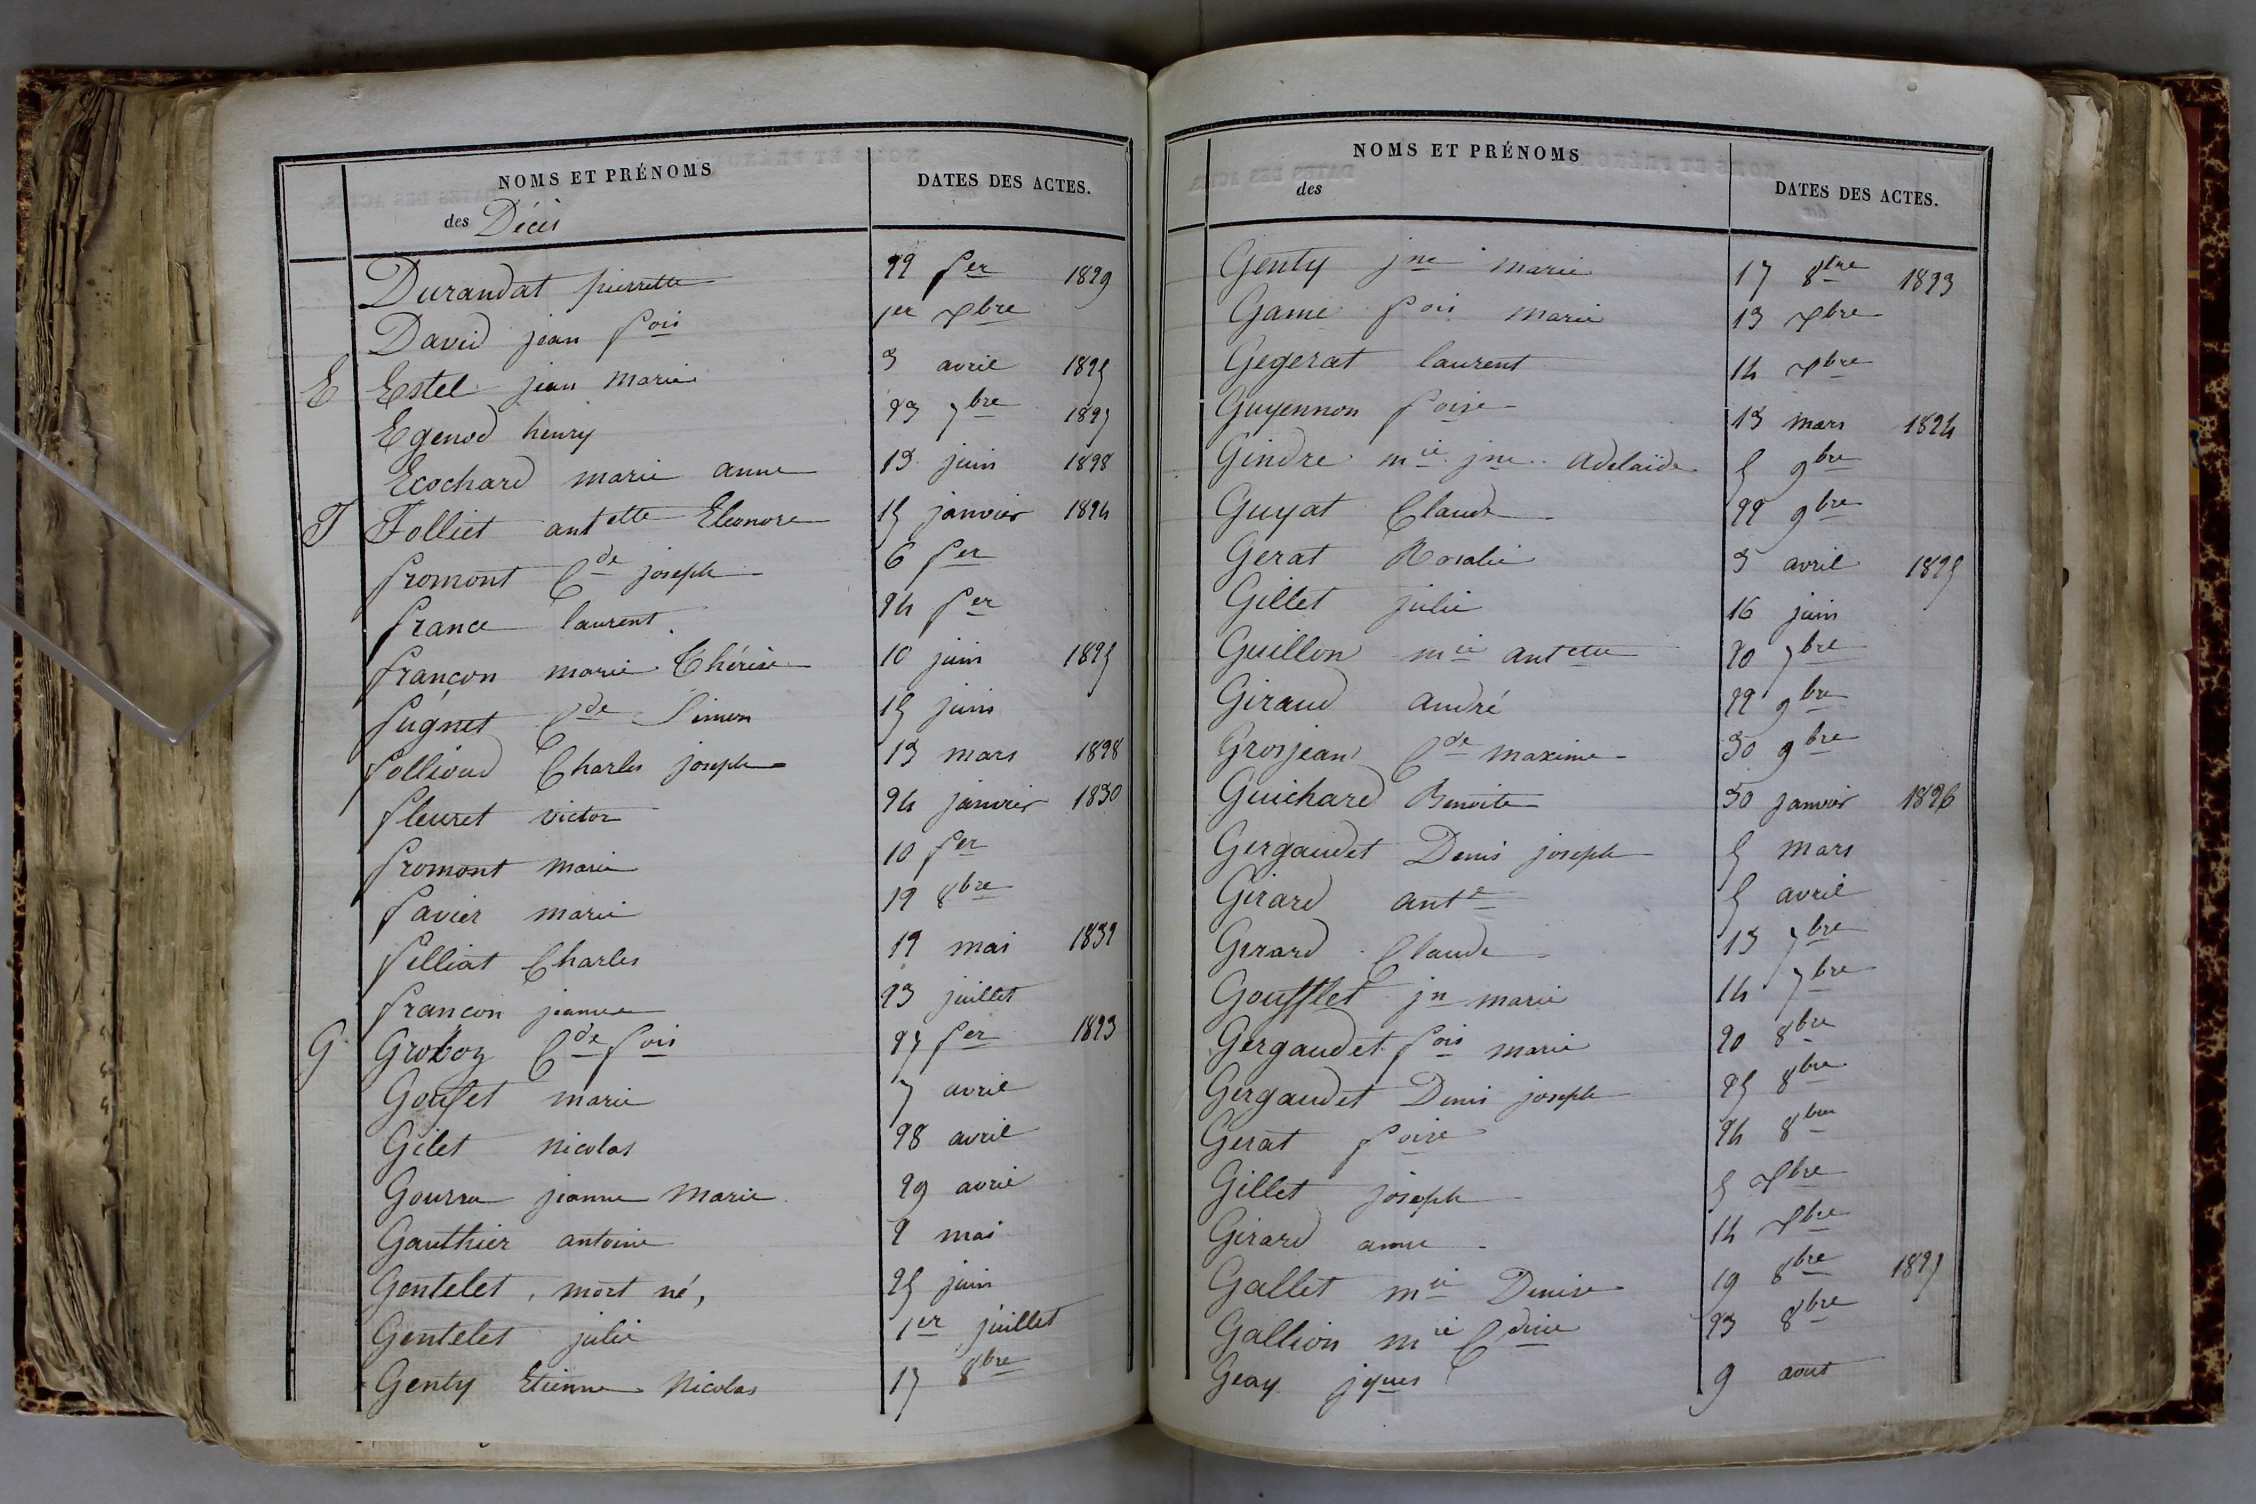 NOMS ET PRÉNOMS
des Décès
DATES DES ACTES.
Durandat pierrette 22 fer 1829
David jean fois 1er xbre
E Estel jean Marie 3 avril 1825
Egenod henry 23 7bre 1827
Ecochard marie anne 13 juin 1828
F Folliet antette Eleonore 15 janvier 1824
fromont Cde joseph 6 fer
france laurent 24 fer
françon marie Thérèse 10 juin 1825
fugnet Cde Simon 15 juin
follioud Charles joseph 13 mars 1828
fleuret victor 24 janvier 1830
fromont marie 10 fer
favier marie 12 8bre
filliat Charles 12 mai 1832
francon jeanne 23 juillet
G Groboz Cde fois 27 fer 1823
Goufet marie 7 avril
Gilet nicolas 28 avril
Gourra jeanne Marie 29 avril
Gauthier antoine 2 mai
Gentelet, mort né, 25 juin
Gentelet julie 1er juillet
Genty Etienne Nicolas 17 8bre
NOMS ET PRÉNOMS
des
DATES DES ACTES.
Genty jne marie 17 8bre 1823
Game fois marie 13 xbre
Gegerat laurent 14 xbre
Guyennon foise 13 mars 1824
Gindre mie jne Adelaïde 5 9bre
Guyat Claude 22 9bre
Gerat Rosalie 3 avril 1825
Gillet julie 16 juin
Guillon mie antette 20 7bre
Giraud andré 22 9bre
Grosjean Cde maxime 30 9bre
Guichard Benoite 30 janvier 1826
Gergaudet Denis joseph 5 mars
Girard ante 5 avril
Girard Claude 13 7bre
Goufflet jn marie 14 7bre
Gergaudet fois marie 20 8bre
Gergaudet Denis joseph 25 8bre
Gerat foise 24 8bre
Gillet joseph 5 xbre
Girard anne 14 xbre
Gallet mie Denise 19 8bre 1827
Gallion mie Cdine 23 8bre
Geay jques 9 aout